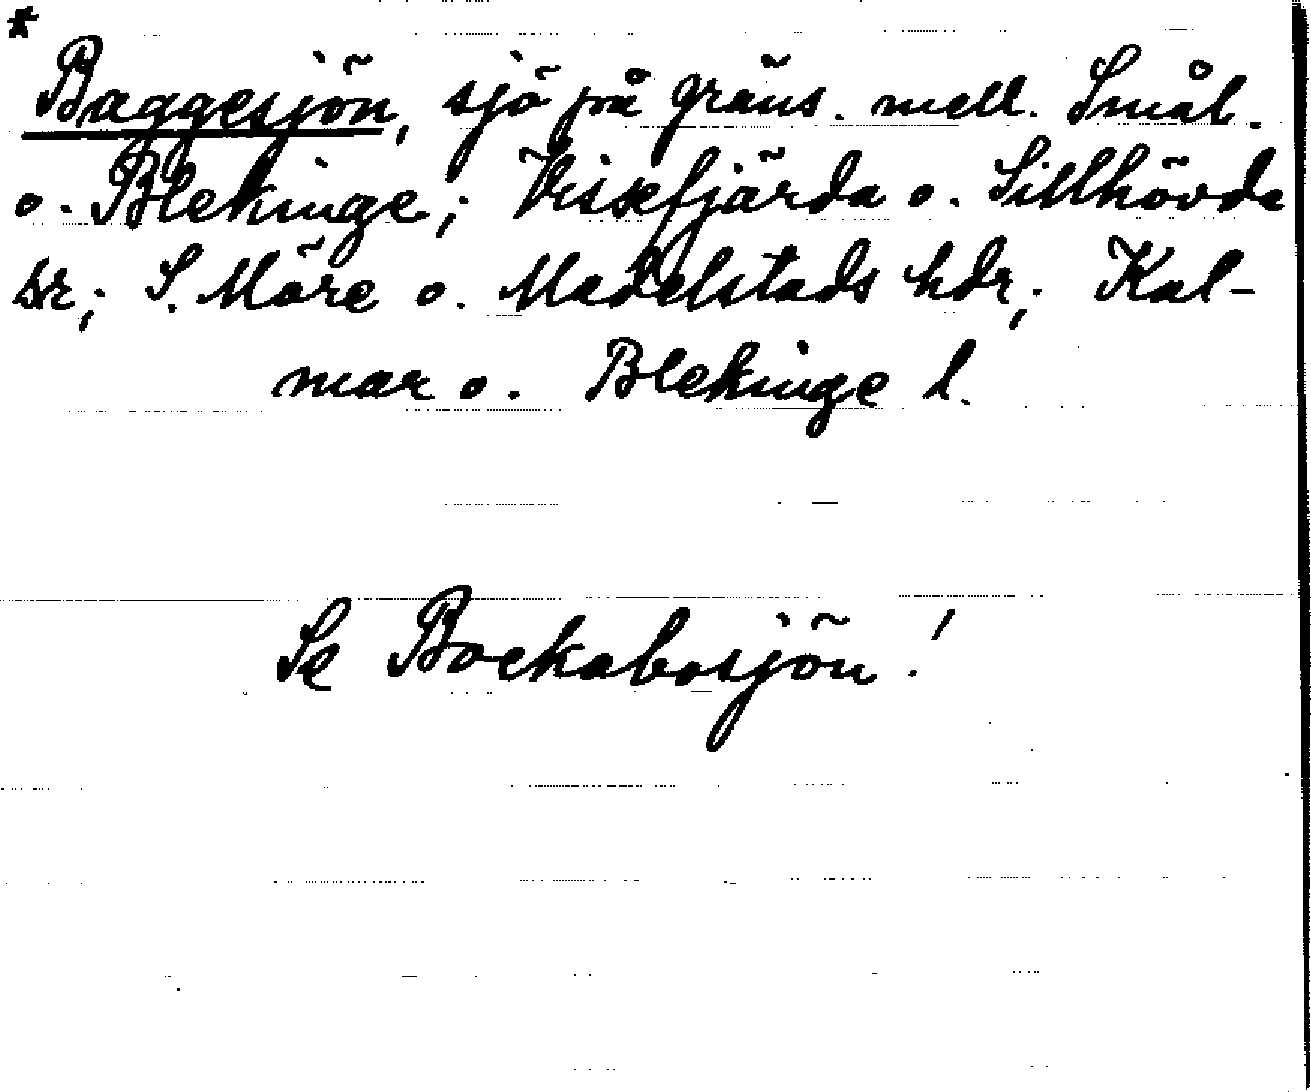 *
Baggesjön, sjö på gräns. mell. Smål.
o. Blekinge; Vissefjärda o. Sillhövda
snr; S. Möre o. Medelstads hdr; Kal-
mar o. Blekinge l.
Se Bockabosjön!